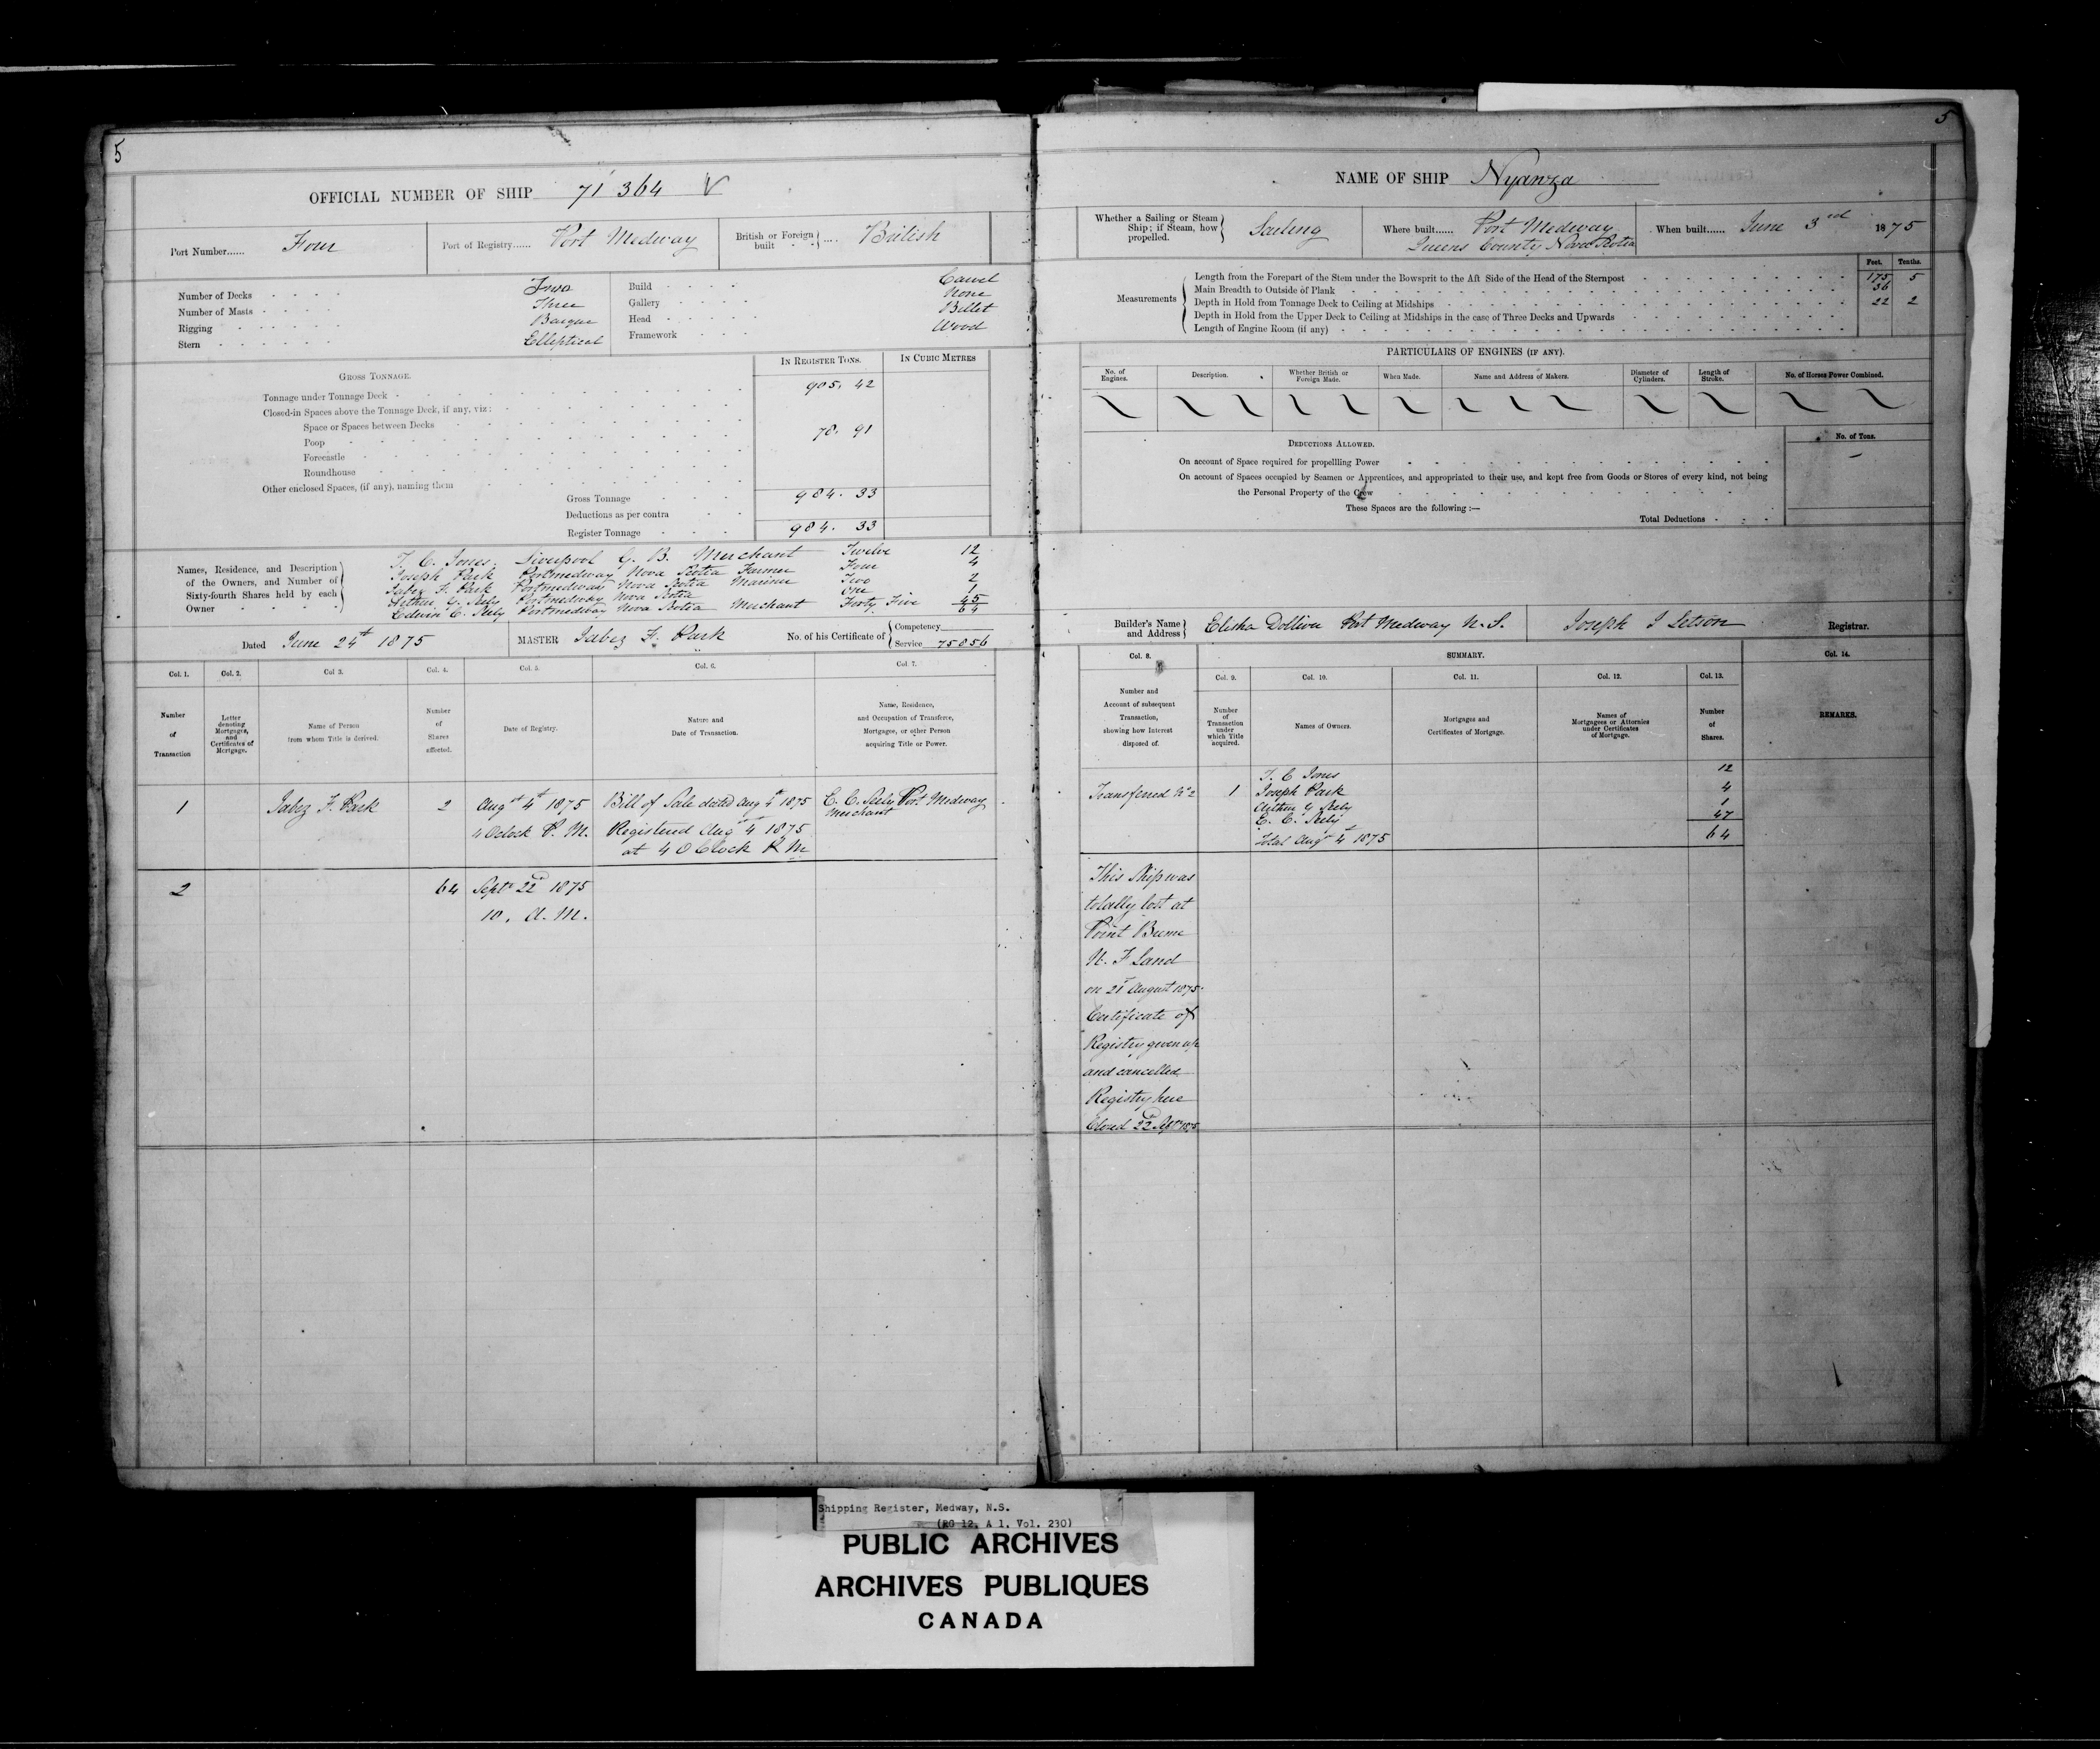 5
OFFICIAL NUMBER OF SHIP 71364
Port Number...... Four
Port of Registry...... Port Medway
British or Foreign built .... British
Number of Decks Two
Number of Masts Three
Rigging Barque
Stern Elliptical
Build Carvel
Gallery None
Head Billet
Framework Wood
IN REGISTER TONS.
IN CUBIC METRES
GROSS TONNAGE.
Tonnage under Tonnage Deck 905. 42
Closed-in Spaces above the Tonnage Deck, if any, viz:
Space or Spaces between Decks
Poop 78. 91
Forecastle
Roundhouse
Other enclosed Spaces, (if any), naming them
Gross Tonnage 984. 33
Deductions as per contra
Register Tonnage 984. 33
Names, Residence, and Description of the Owners, and Number of Sixty-fourth Shares held by each Owner
T. C. Jones. Liverpool G. B. Merchant Twelve 12
Joseph Park Portmedway Nova Scotia Farmer Four 4
Jabez F. Park Portmedway Nova Scotia Mariner Two 2
Arthur G. Seely Portmedway Nova Scotia One 1
Edwin C. Seely Portmedway Nova Scotia Merchant Forty Five 45
64
Dated June 24th 1875
MASTER Jabez F. Park
No. of his Certificate of Competency
Service 75056
Col. 1.
Col. 2.
Col 3.
Col. 4.
Col. 5.
Col. 6.
Col. 7.
Number of Transaction
Letter denoting Mortgages, and Certificates of Mortgage.
Name of Person from whom Title is derived.
Number of Shares affected.
Date of Registry.
Nature and Date of Transaction.
Name, Residence, and Occupation of Transferee, Mortgagee, or other Person acquiring Title or Power.
1 Jabez F. Park 2
Augst 4th 1875
4 Oclock P. M.
Bill of Sale dated Aug 4th 1875
Registered Augst 4th 1875
at 4 OClock P. M
E. C. Seely Port Medway
Merchant
2 64
Septr 22d 1875
10. A. M.
5
NAME OF SHIP Nyanza
Whether a Sailing or Steam Ship; if Steam, how propelled. Sailing
Where built...... Port Medway
Queens County Nova Scotia
When built...... June 3rd 1875
Feet. Tenths.
Measurements
Length from the Forepart of the Stem under the Bowsprit to the Aft Side of the Head of the Sternpost 175 5
Main Breadth to Outside of Plank 36
Depth in Hold from Tonnage Deck to Ceiling at Midships 22 2
Depth in Hold from the Upper Deck to Ceiling at Midships in the case of Three Decks and Upwards
Length of Engine Room (if any)
PARTICULARS OF ENGINES (IF ANY).
No. of Engines.
Description.
Whether British or Foreign Made.
When Made.
Name and Address of Makers.
Diameter of Cylinders.
Length of Stroke.
No. of Horses Power Combined.
DEDUCTIONS ALLOWED.
No. of Tons.
On account of Space required for propellling Power
On account of Spaces occupied by Seamen or Apprentices, and appropriated to their use, and kept free from Goods or Stores of every kind, not being
the Personal Property of the Crew
These Spaces are the following :—
Total Deductions
Builder's Name and Address Elisha Dolliver Port Medway N. S.
Joseph S Letson Registrar.
Col. 8.
SUMMARY.
Col. 14.
Col. 9.
Col. 10.
Col. 11.
Col. 12.
Col. 13.
Number and Account of subsequent Transaction, showing how Interest disposed of.
Number of Transaction under which Title acquired.
Names of Owners.
Mortgages and Certificates of Mortgage.
Names of Mortgagees or Attornies under Certificates of Mortgage.
Number of Shares.
REMARKS.
Transferred No 2
1
T. C Jones 12
Joseph Park 4
Arthur G Seely 1
E. C. Seely 47
Total Augst 4 1875 64
This Ship was
totally lost at
Point
N. F Land
on 21st August 1875.
Certificate of
Registry given up
and cancelled
Registry here
Closed 22d Sepr 1875
Shipping Register, Medway, N.S.
(RG 12, A 1, Vol. 230)
PUBLIC ARCHIVES
ARCHIVES PUBLIQUES
CANADA